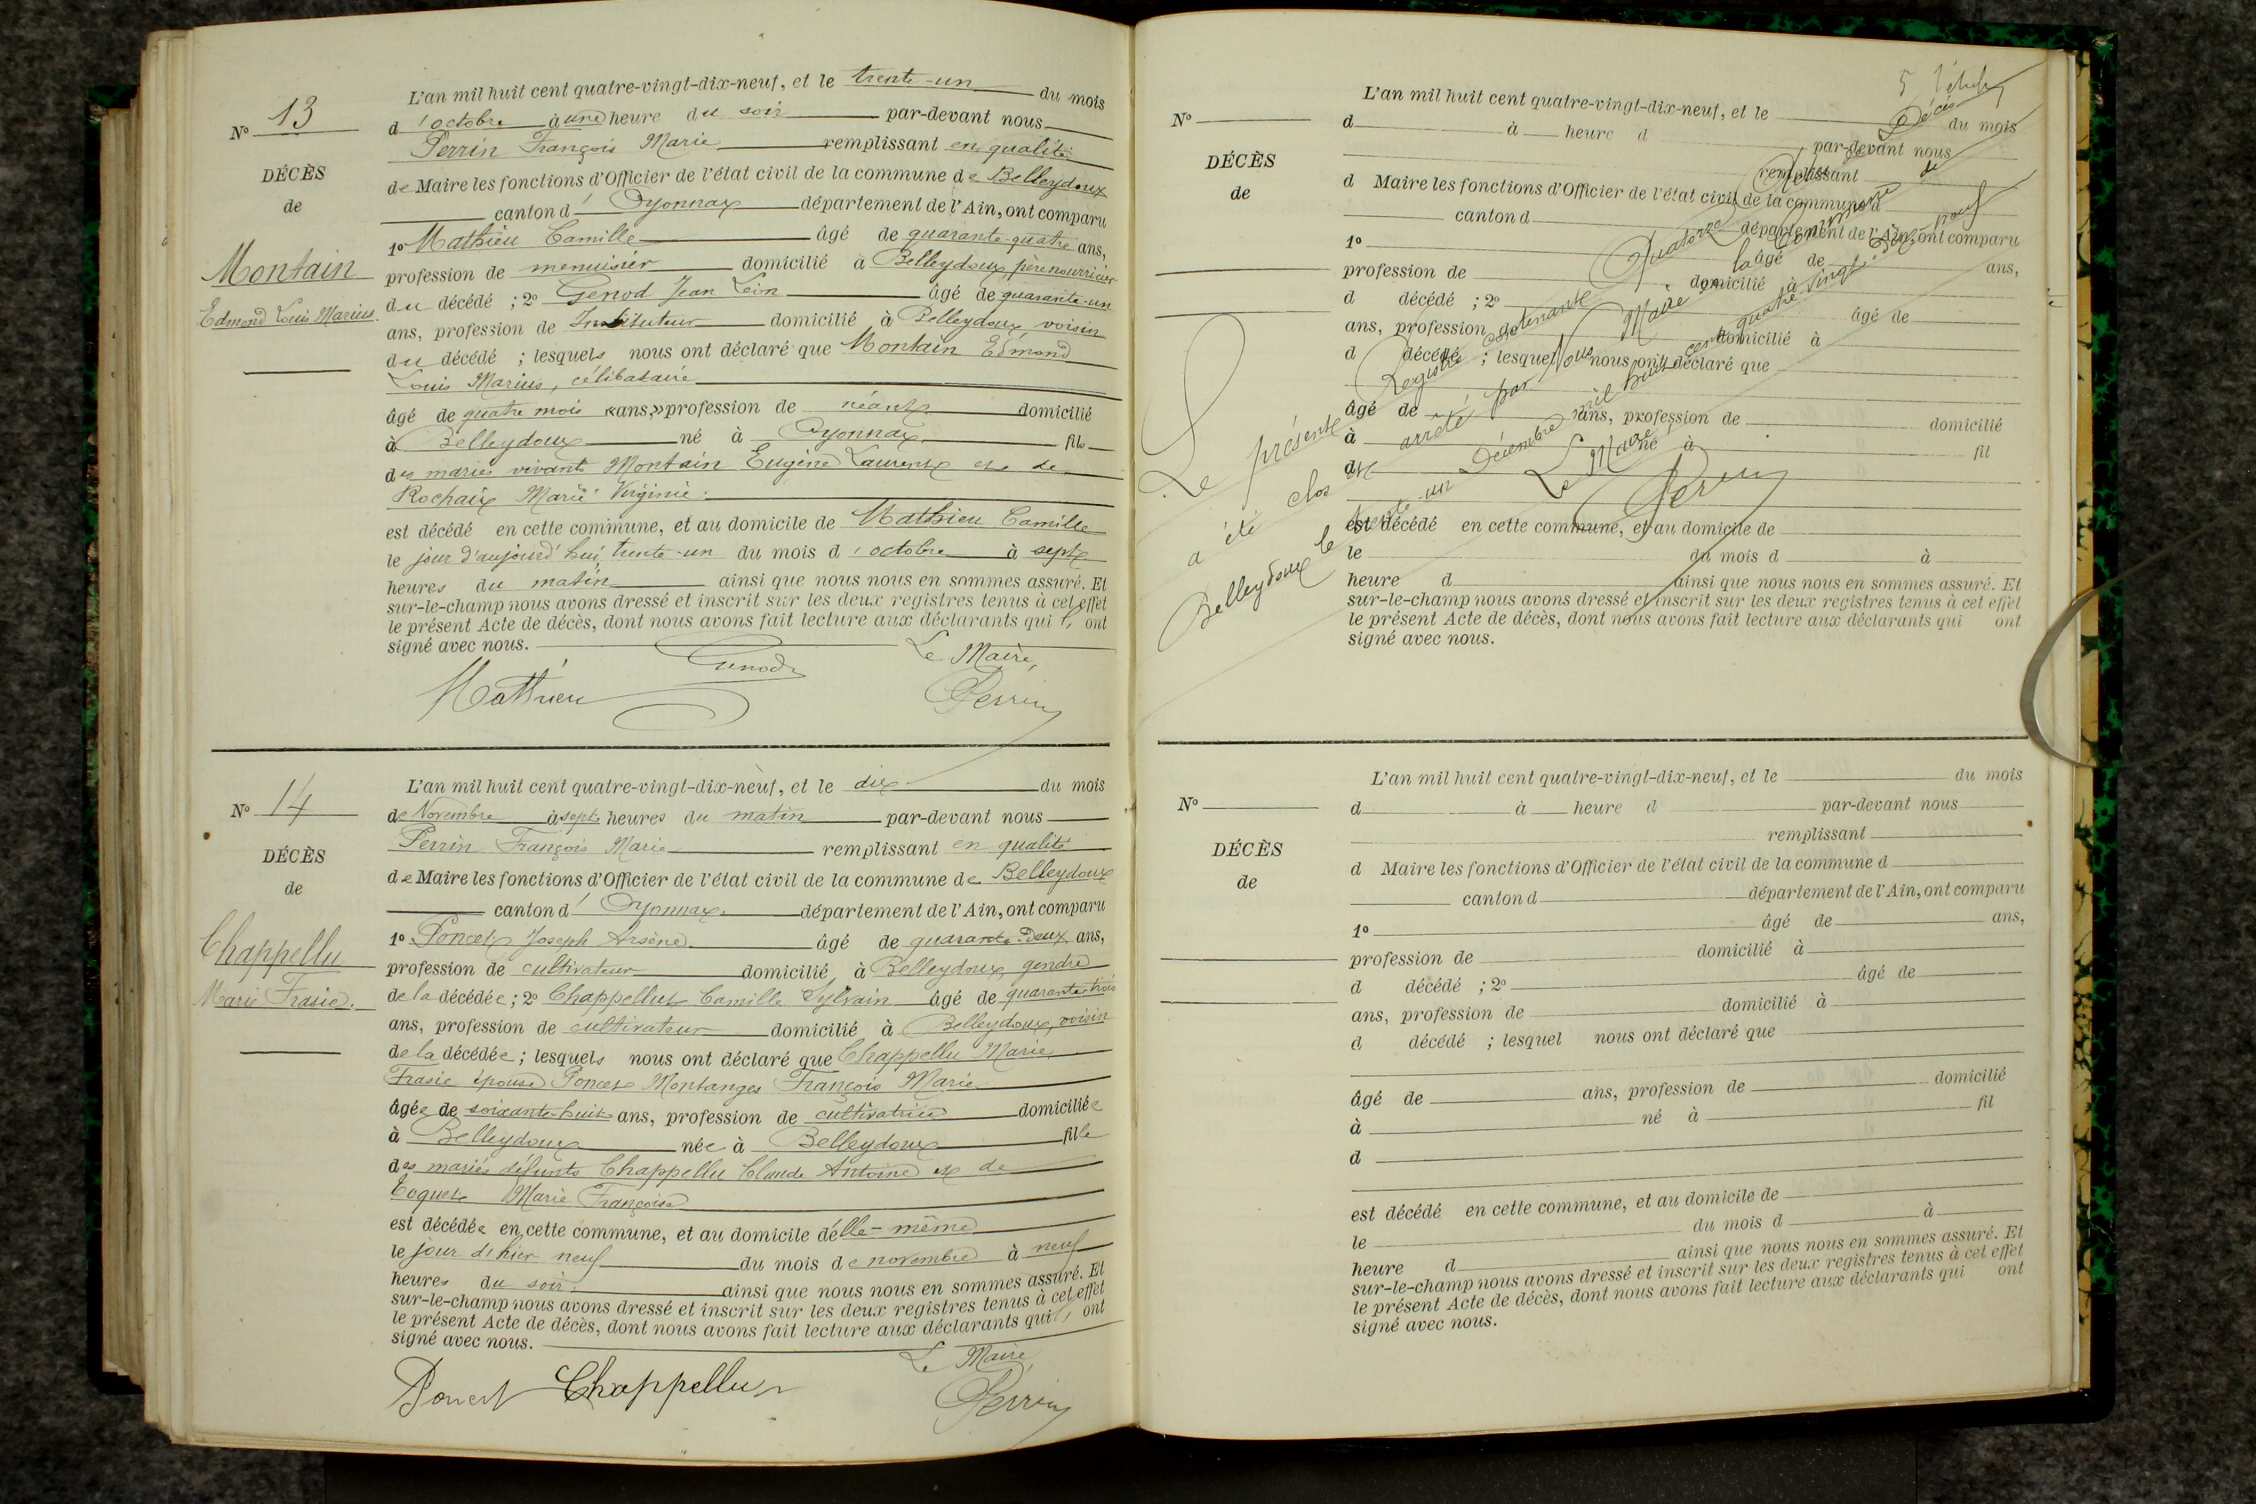 N° 13
DÉCÈS
de
Montain
Edmond Louis Marius.
L'an mil huit cent quatre-vingt-dix-neuf, et le trente-un du mois
d'octobre à une heure du soir par-devant nous
Perrin François Marie remplissant en qualité
de Maire les fonctions d'Officier de l'état civil de la commune de Belleydoux
canton d'Oyonnax département de l'Ain, ont comparu
1° Mathieu Camille âgé de quarante-quatre ans,
profession de menuisier domicilié à Belleydoux, père nourricier
du décédé ; 2° Genod Jean Léon âgé de quarante-un
ans, profession de Instituteur domicilié à Belleydoux, voisin
du décédé ; lesquels nous ont déclaré que Montain Edmond
Louis Marius, célibataire
âgé de quatre mois «ans,» profession de néant domicilié
à Belleydoux né à Oyonnax fils
des mariés vivants Montain Eugène Laurent et de
Rochaix Marie Virginie.
est décédé en cette commune, et au domicile de Mathieu Camille
le jour d'aujourd'hui, trente-un du mois d'octobre à sept
heures du matin ainsi que nous nous en sommes assuré. Et
sur-le-champ nous avons dressé et inscrit sur les deux registres tenus à cet effet
le présent Acte de décès, dont nous avons fait lecture aux déclarants qui ont
signé avec nous.
Mathieu Genod Le Maire,
Perrin
N° 14
DÉCÈS
de
Chappellu
Marie Frasie.
L'an mil huit cent quatre-vingt-dix-neuf, et le dix du mois
de Novembre à sept heures du matin par-devant nous
Perrin François Marie remplissant en qualité
de Maire les fonctions d'Officier de l'état civil de la commune de Belleydoux
canton d'Oyonnax. département de l'Ain, ont comparu
1° Poncet Joseph Arsène âgé de quarante-deux ans,
profession de cultivateur domicilié à Belleydoux, gendre
de la décédée ; 2° Chappellut Camille Sylvain âgé de quarante-trois
ans, profession de cultivateur domicilié à Belleydoux, voisin
de la décédée ; lesquels nous ont déclaré que Chappellu Marie
Frasie épouse Poncet Montanges François Marie
âgée de soixante-huit ans, profession de cultivatrice domiciliée
à Belleydoux née à Belleydoux fille
des mariés défunts Chappellu Claude Antoine et de
Coquet Marie Françoise
est décédée en cette commune, et au domicile d'elle-même
le jour d'hier neuf du mois de novembre à neuf
heures du soir, ainsi que nous nous en sommes assuré. Et
sur-le-champ nous avons dressé et inscrit sur les deux registres tenus à cet effet
le présent Acte de décès, dont nous avons fait lecture aux déclarants qui ont
signé avec nous.
Le Maire,
Poncet Chappellu Perrin
N°
DÉCÈS
de
L'an mil huit cent quatre-vingt-dix-neuf, et le du mois
d à heure d par-devant nous
remplissant
d Maire les fonctions d'Officier de l'état civil de la commune d
canton d département de l'Ain, ont comparu
1° âgé de ans,
profession de domicilié à
d décédé ; 2° âgé de
ans, profession de domicilié à
d décédé ; lesquel nous ont déclaré que
âgé de ans, profession de domicilié
à né à fil
d
est décédé en cette commune, et au domicile de
le du mois d à
heure d ainsi que nous nous en sommes assuré. Et
sur-le-champ nous avons dressé et inscrit sur les deux registres tenus à cet effet
le présent Acte de décès, dont nous avons fait lecture aux déclarants qui ont
signé avec nous.
Le présent Registre contenant Quatorze Actes de Décès
a été clos et arrêté par Nous Maire de la Commune de
Belleydoux le trente-un Décembre mil huit cent quatre vingt-dix-neuf
Le Maire
Perrin
N°
DÉCÈS
de
L'an mil huit cent quatre-vingt-dix-neuf, et le du mois
d à heure d par-devant nous
remplissant
d Maire les fonctions d'Officier de l'état civil de la commune d
canton d département de l'Ain, ont comparu
1° âgé de ans,
profession de domicilié à
d décédé ; 2° âgé de
ans, profession de domicilié à
d décédé ; lesquel nous ont déclaré que
âgé de ans, profession de domicilié
à né à fil
d
est décédé en cette commune, et au domicile de
le du mois d à
heure d ainsi que nous nous en sommes assuré. Et
sur-le-champ nous avons dressé et inscrit sur les deux registres tenus à cet effet
le présent Acte de décès, dont nous avons fait lecture aux déclarants qui ont
signé avec nous.